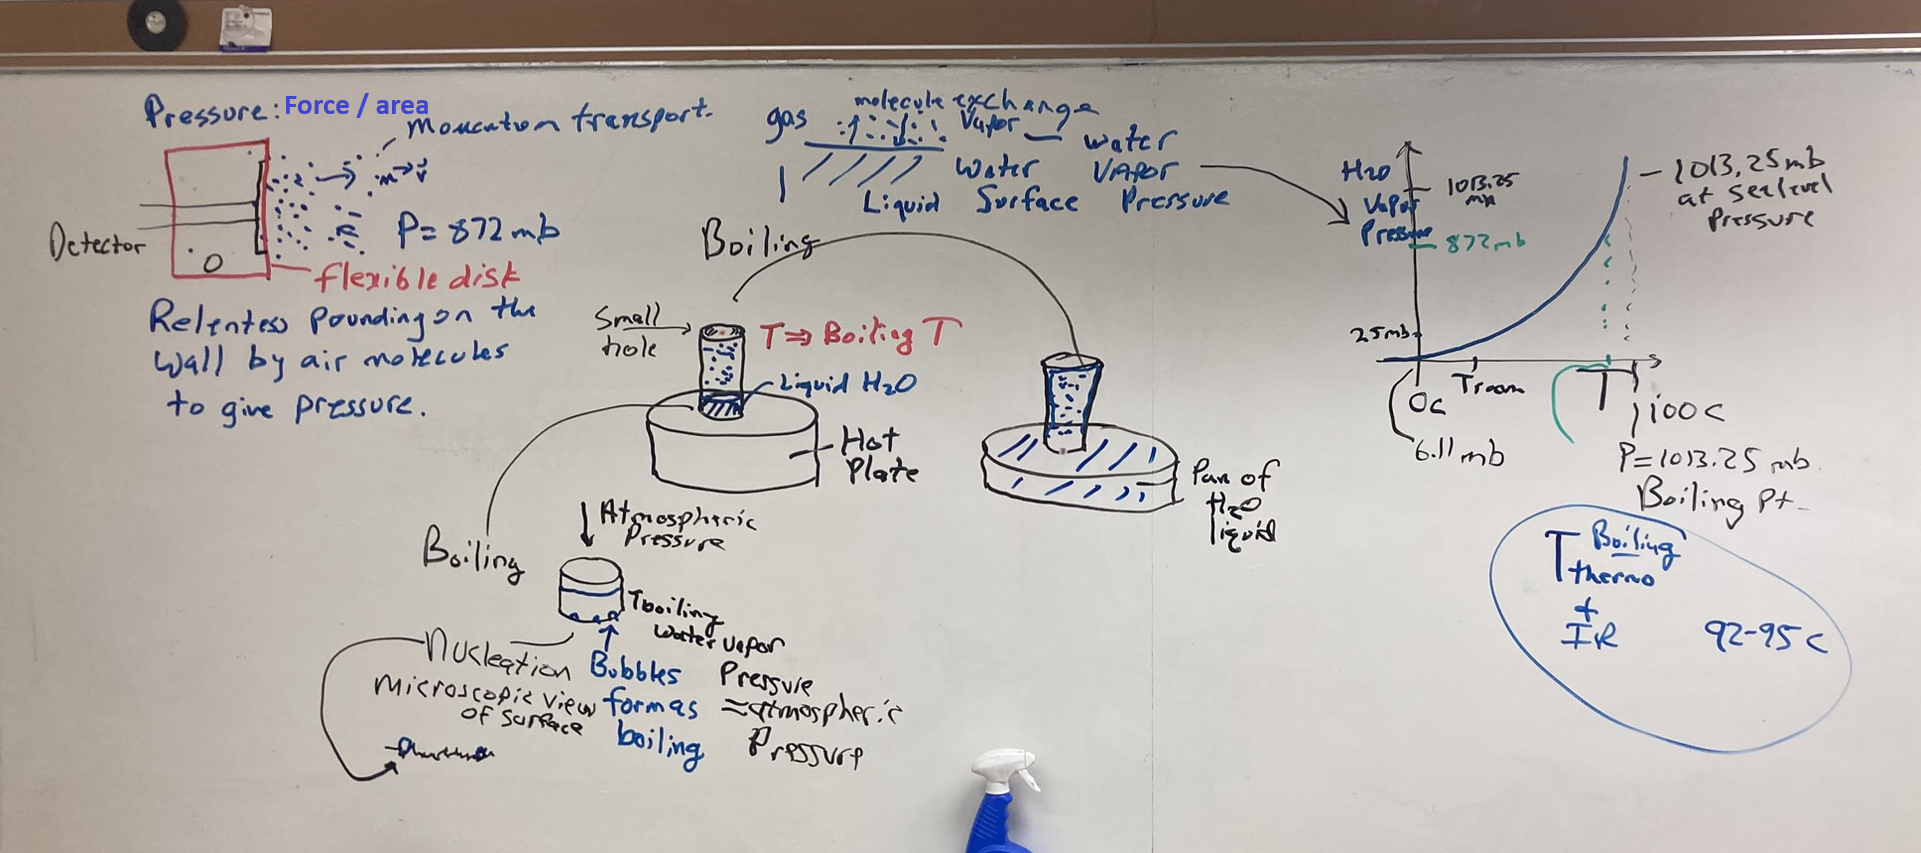 Pressure: Force / area
Momentum transport.
m → v
Detector
P = 872 mb
O
flexible disk
Relentless Pounding on the
Wall by air molecules
to give pressure.
molecule exchange
gas
Vapor
Water
Water VAPOR
Liquid Surface Pressure
Boiling
Small
hole
T ⇒ Boiling T
Liquid H2O
Hot
Plate
Pan of
H2O
liquid
Atmospheric
Pressure
Boiling
Tboiling
Water vapor
Pressure
=atmospheric
Pressure
Nucleation
Microscopic view
of surface
Bubbles
form as
boiling
H2O
Vapor
Pressure
1013.25
mb
872mb
25mb
1013.25mb
at sea level
Pressure
0c
Troom
T
100C
6.11 mb
P=1013.25 mb
Boiling Pt.
T Boiling
thermo
+
IR
92-95 C